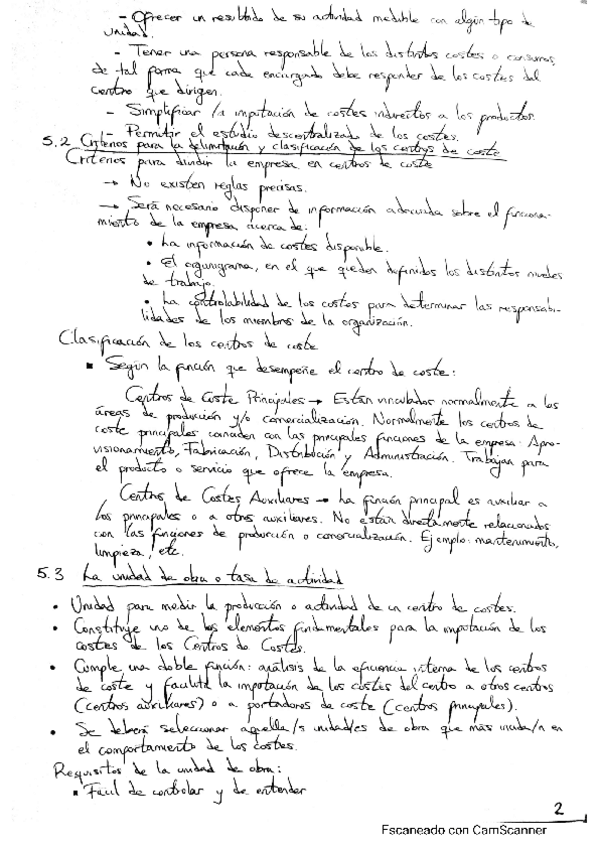 - Ofrecer un resultado de su actividad medible con algún tipo de
unidad.
- Tener una persona responsable de los distintos costes o consumos,
de tal forma que cada encargado debe responder de los costes del
centro que dirigen.
- Simplificar la imputación de costes indirectos a los productos.
- Permitir el estudio descentralizado de los costes.
5.2 Criterios para la delimitación y clasificación de los centros de coste
Criterios para dividir la empresa en centros de coste
→ No existen reglas precisas.
→ Será necesario disponer de información adecuada sobre el funciona-
miento de la empresa acerca de:
• La información de costes disponible.
• El organigrama, en el que queden definidos los distintos niveles
de trabajo.
• La controlabilidad de los costes para determinar las responsabi-
lidades de los miembros de la organización.
Clasificación de los centros de coste
▪ Según la función que desempeñe el centro de coste:
Centros de Coste Principales → Están vinculados normalmente a las
áreas de producción y/o comercialización. Normalmente los centros de
coste principales coinciden con las principales funciones de la empresa: Apro-
visionamiento, Fabricación, Distribución y Administración. Trabajan para
el producto o servicio que ofrece la empresa.
Centros de Costes Auxiliares → La función principal es auxiliar a
los principales o a otros auxiliares. No están directamente relacionados
con las funciones de producción o comercialización. Ejemplo: mantenimiento,
limpieza, etc.
5.3 La unidad de obra o tasa de actividad
• Unidad para medir la producción o actividad de un centro de costes.
• Constituye uno de los elementos fundamentales para la imputación de los
costes de los Centros de Costes.
• Cumple una doble función: análisis de la eficiencia interna de los centros
de coste y facilita la imputación de los costes del centro a otros centros
(centros auxiliares) o a portadores de coste (centros principales).
• Se deberá seleccionar aquella/s unidad/es de obra que más incida/n en
el comportamiento de los costes.
Requisitos de la unidad de obra:
▪ Fácil de controlar y de entender
2
Escaneado con CamScanner